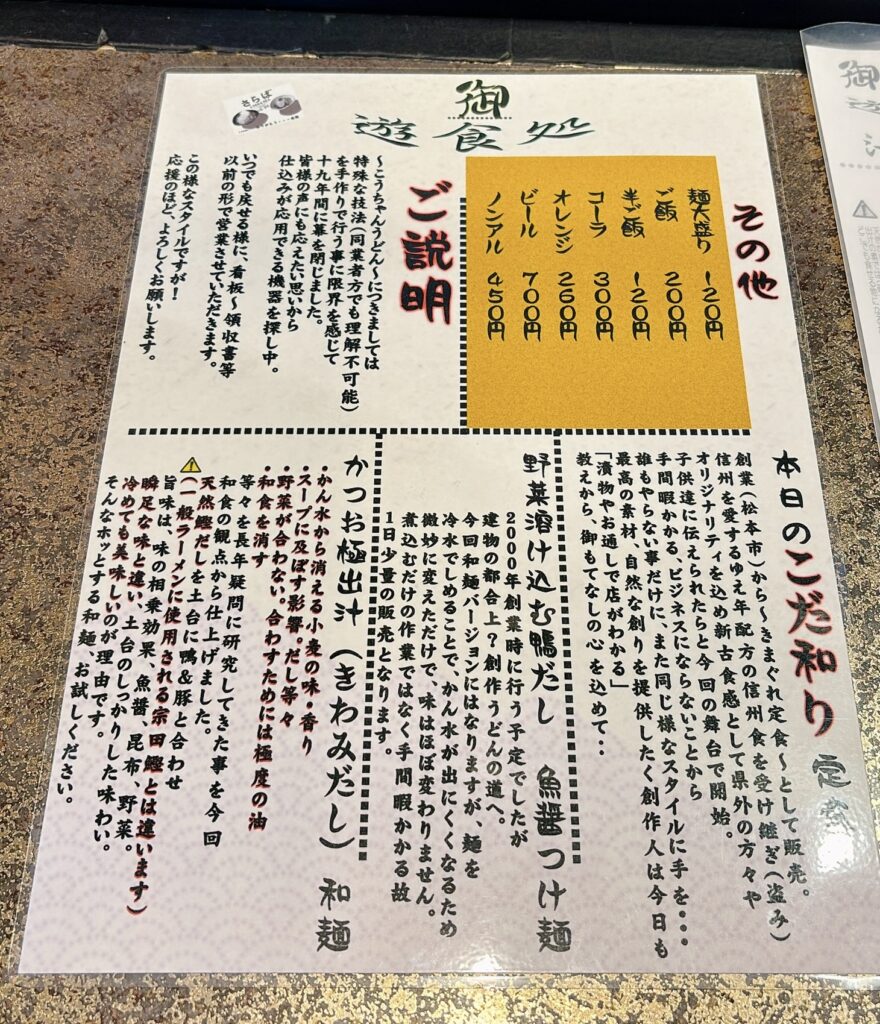 御
遊食処
さらば
その他
麺大盛り 120円
ご飯 200円
半ご飯 120円
コーラ 300円
オレンジ 260円
ビール 700円
ノンアル 450円
ご説明
~こうちゃんうどん~につきましては
特殊な技法(同業者方でも理解不可能)
を手作りで行う事に限界を感じて
十九年間に幕を閉じました。
皆様の声にも応えたい思いから
仕込みが応用できる機器を探し中。
いつでも戻せる様に、看板~領収書等
以前の形で営業させていただきます。
この様なスタイルですが!
応援のほど、よろしくお願いします。
本日のこだ和り 定食
創業(松本市)から~きまぐれ定食~として販売。
信州を愛するゆえ年配方の信州食を受け継ぎ(盗み)
オリジナリティを込め新古食感として県外の方々や
子供達に伝えられたらと今回の舞台で開始。
手間暇かかる、ビジネスにならないことから
誰もやらない事だけに、また同じ様なスタイルに手を・・・
最高の素材、自然な創りを提供したく創作人は今日も
「漬物やお通しで店がわかる」
教えから、御もてなしの心を込めて・・
野菜溶け込む鴨だし 魚醤つけ麺
2000年創業時に行う予定でしたが
建物の都合上?創作うどんの道へ。
今回和麺バージョンにはなりますが、麺を
冷水でしめることで、かん水が出にくくなるため
微妙に変えただけで、味はほぼ変わりません。
煮込むだけの作業ではなく手間暇かかる故
1日少量の販売となります。
かつお極出汁(きわみだし) 和麺
・かん水から消える小麦の味・香り
・スープに及ぼす影響。だし等々
・野菜が合わない。合わすためには極度の油
・和食を消す
等々を長年疑問に研究してきた事を今回
和食の観点から仕上げました。
天然鰹だしを土台に鴨&豚と合わせ
⚠(一般ラーメンに使用される宗田鰹とは違います)
旨味は、味の相乗効果、魚醤、昆布、野菜。
瞬足な味と違い、土台のしっかりした味わい。
冷めても美味しいのが理由です。
そんなホッとする和麺、お試しください。
御
遊